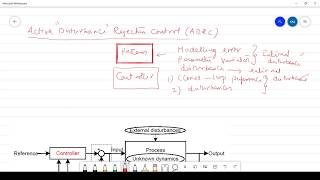 Active "Disturbance" Rejection Control (ADRC)
Process
Modelling error
Parametric variation } Internal disturbance
disturbance → external
Controller
1) Closed-loop performance
disturbance
2) disturbances
External disturbances
Reference Controller Input Process Output
Unknown dynamics